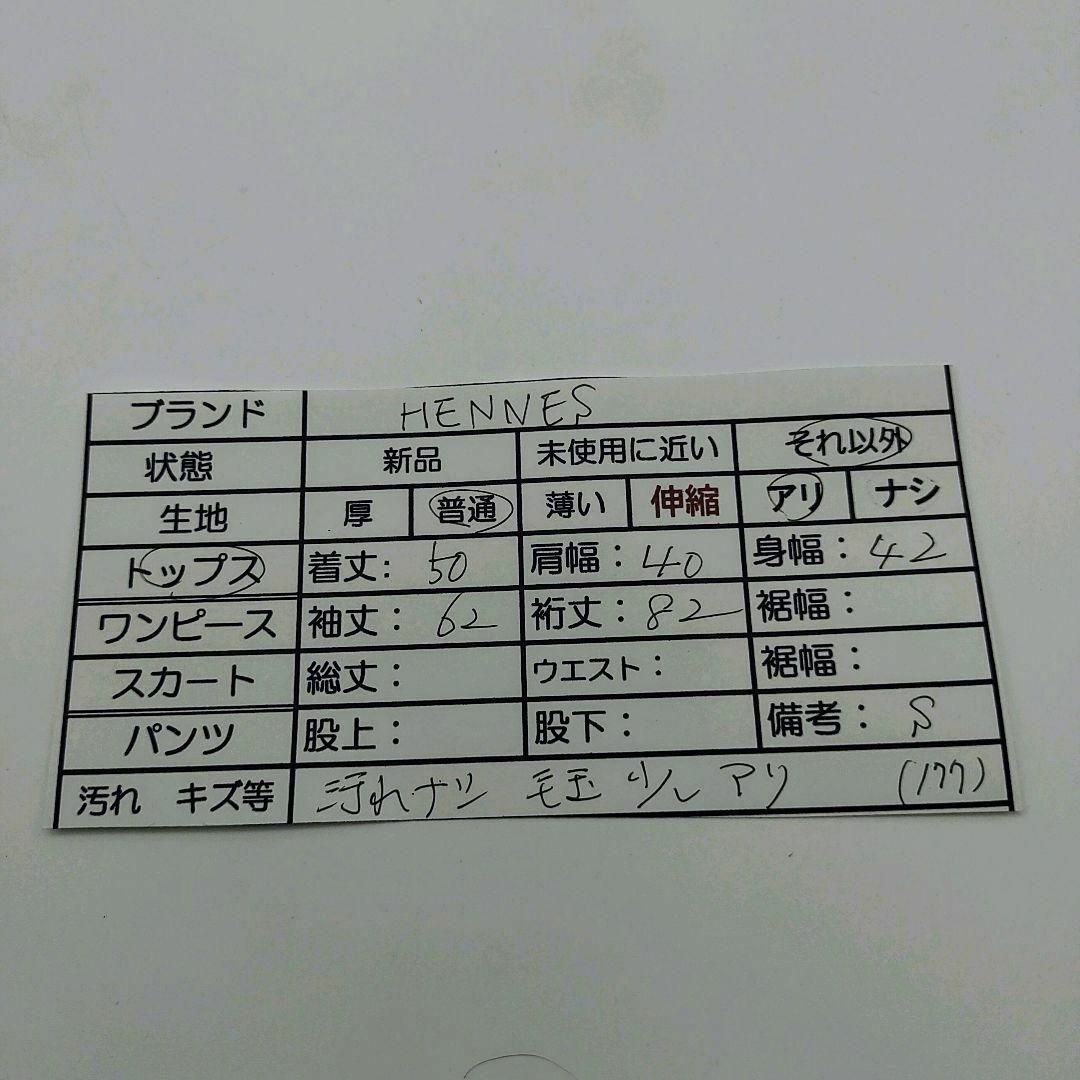 ブランド HENNES
状態 新品 未使用に近い それ以外
生地 厚 普通 薄い 伸縮 アリ ナシ
トップス 着丈: 50 肩幅: 40 身幅: 42
ワンピース 袖丈: 62 裄丈: 82 裾幅:
スカート 総丈: ウエスト: 裾幅:
パンツ 股上: 股下: 備考: S
汚れ キズ等 汚れナシ 毛玉 少し アリ (177)